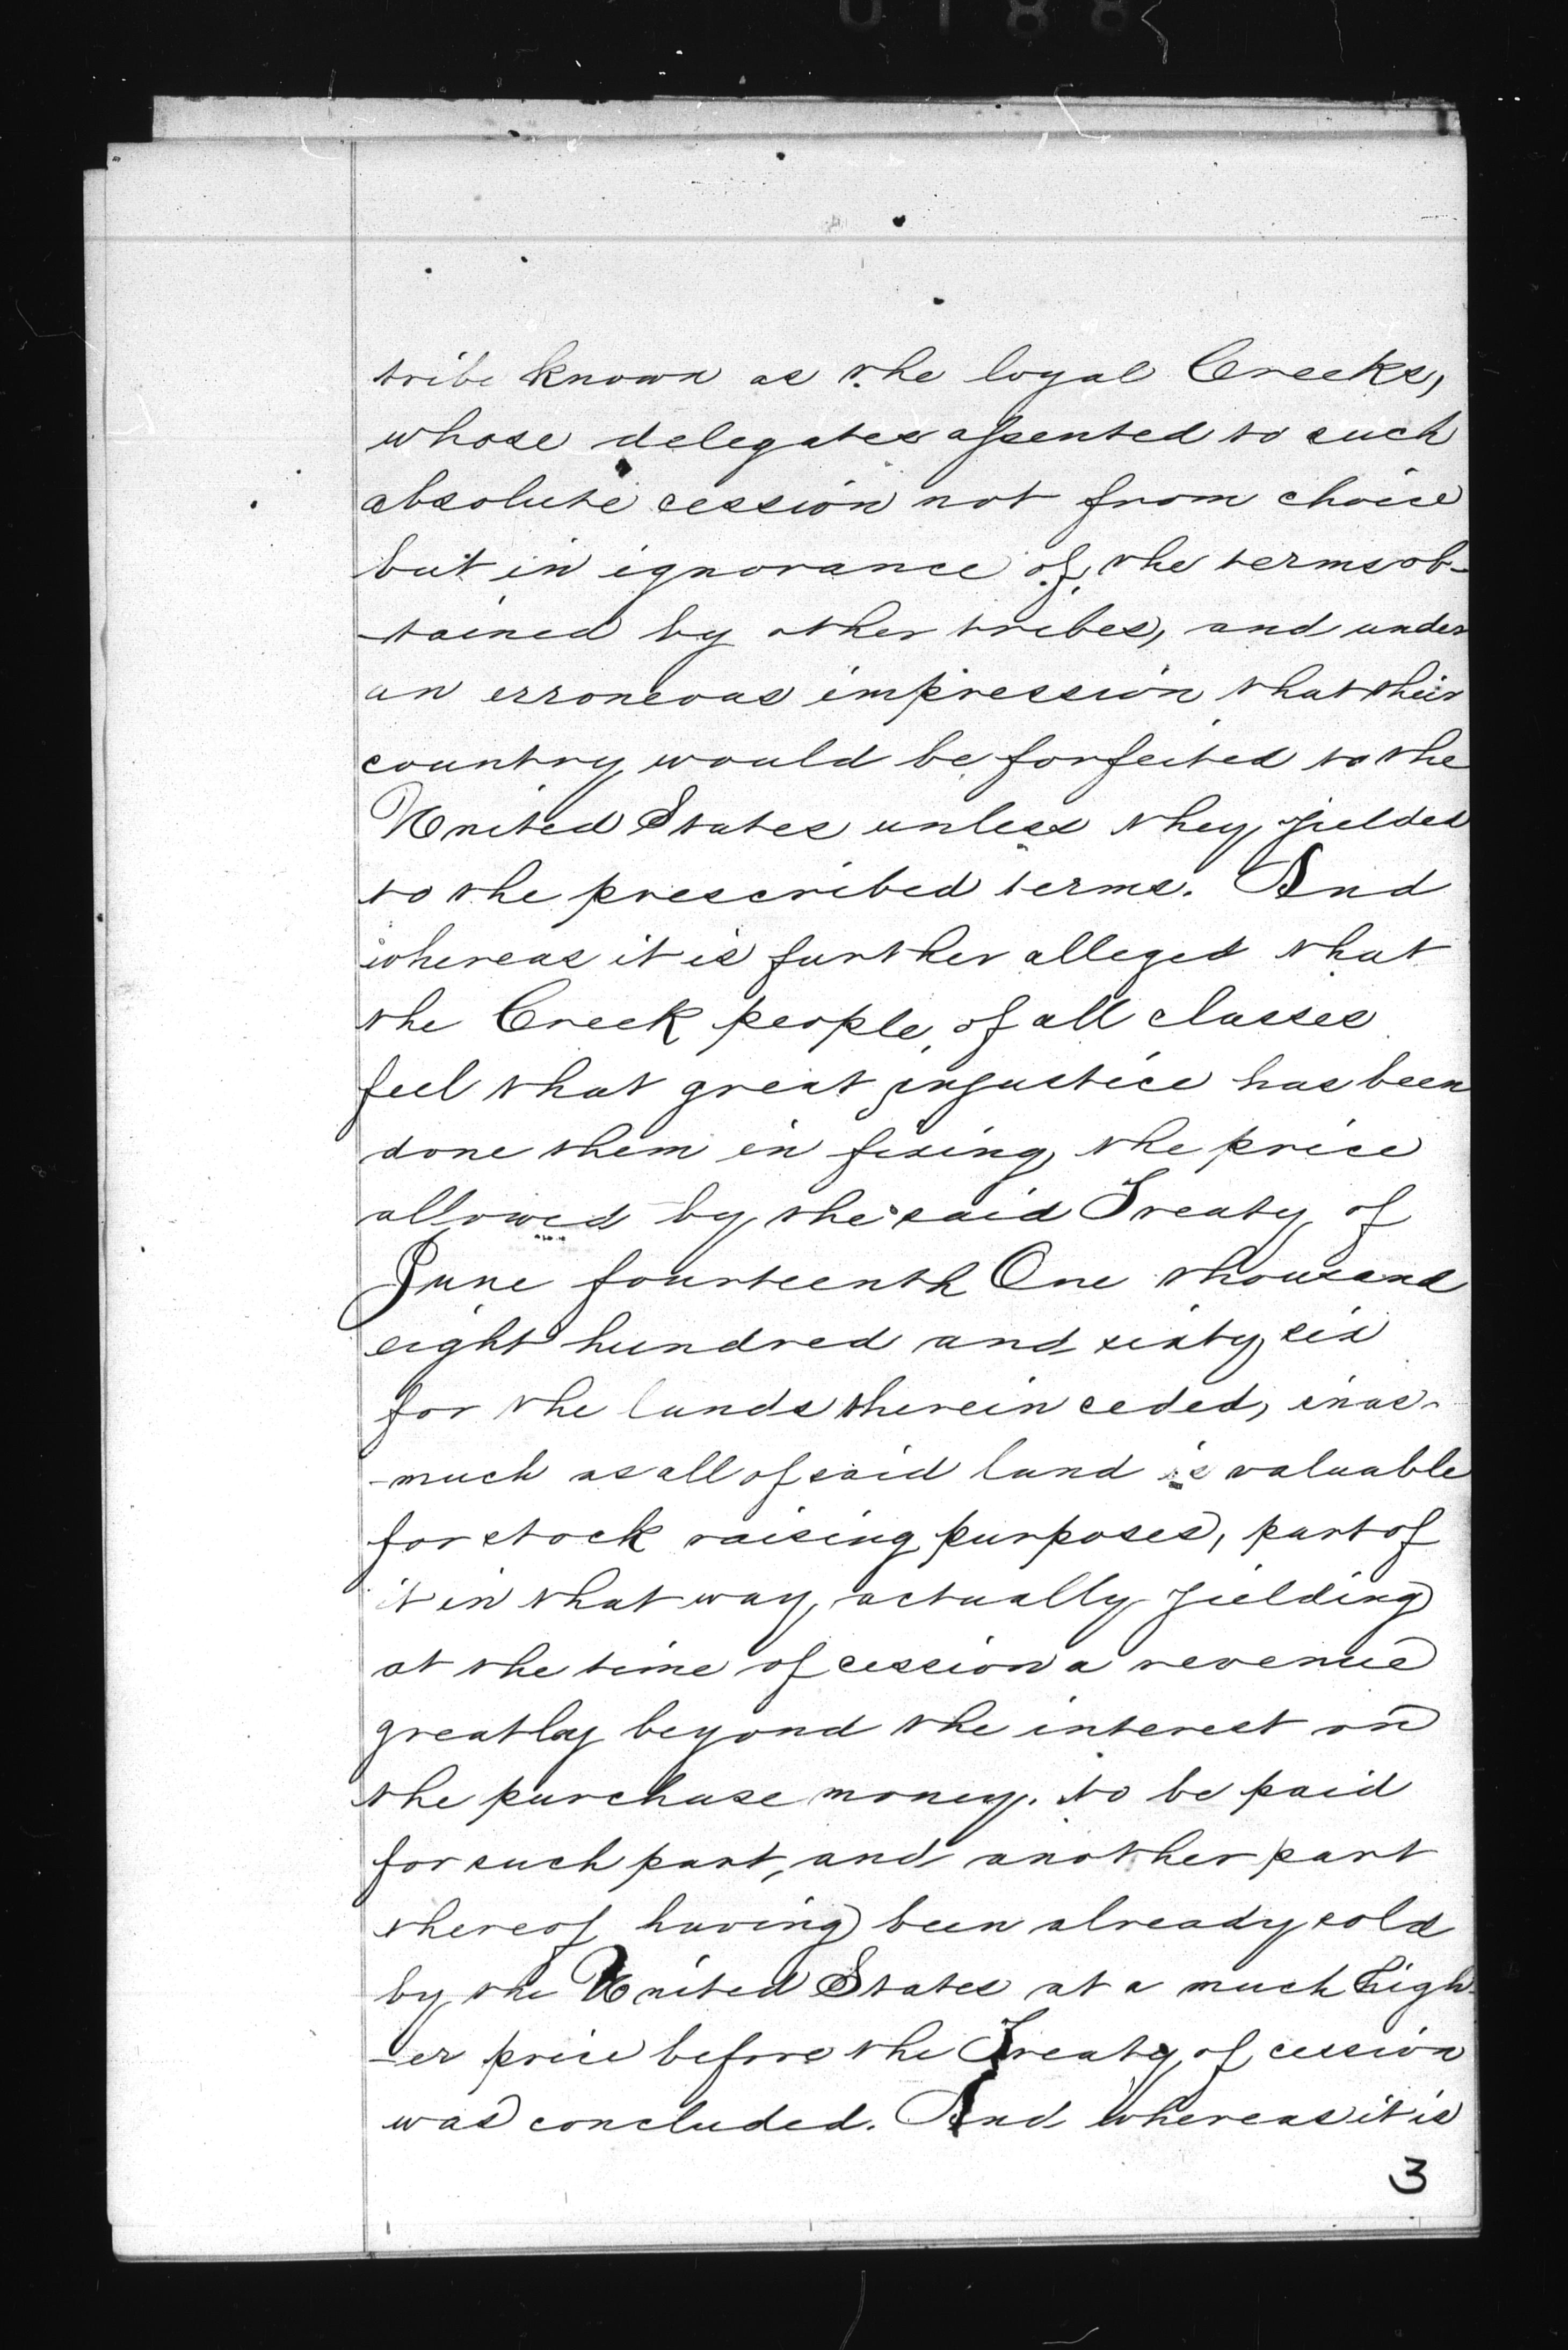 0188
tribe known as the loyal Creeks,
whose delegates assented to such
absolute cession not from choice
but in ignorance of the terms ob-
-tained by other tribes, and under
an erroneous impression that their
country would be forfeited to the
United States unless they yielded
to the prescribed terms. And
whereas it is further alleged that
the Creek people, of all classes
feel that great injustice has been
done them in fixing the price
allowed by the said Treaty of
June fourteenth One thousand
eight hundred and sixty six
for the lands therein ceded, inas-
-much as all of said land is valuable
for stock raising purposes, part of
it in that way, actually yielding
at the time of cession a revenue
greatly beyond the interest on
the purchase money. to be paid
for such part, and another part
thereof having been already sold
by the United States at a much high-
-er price before the Treaty of cession
was concluded. And whereas it is
3